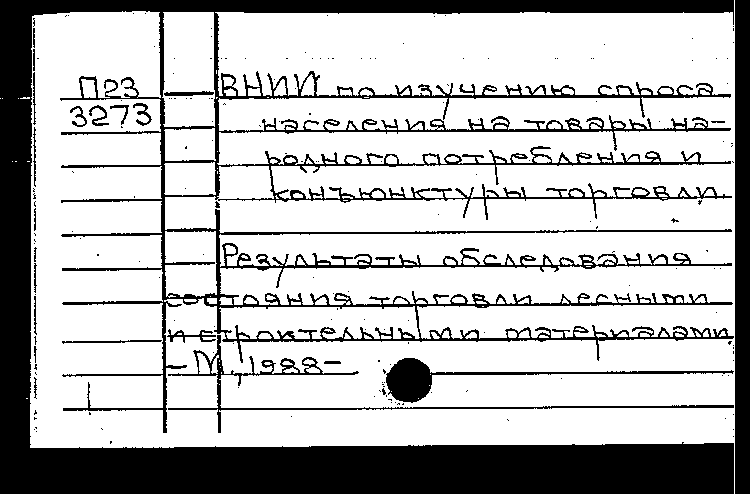 П23 ВНИИ по изучению спроса
3273 населения на товары на-
родного потребления и
конъюнктуры торговли.
Результаты обследования
состояния торговли лесными
и строительными материалами
– М., 1988–